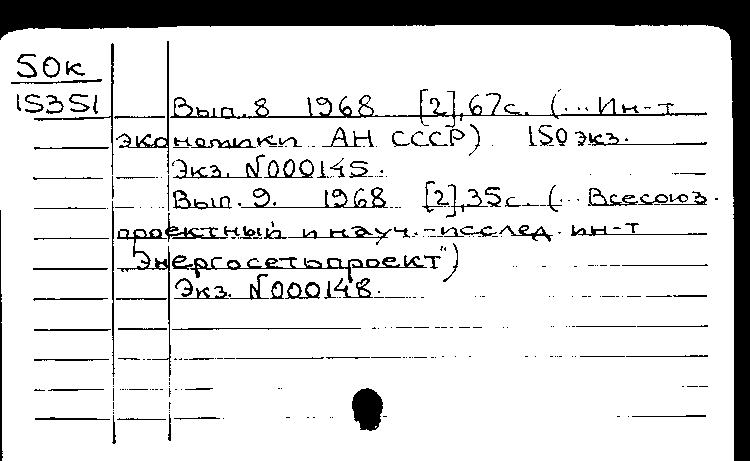 50к
15351 Вып. 8 1968 [2], 67с. (... Ин-т
экономики АН СССР) 150 экз.
Экз. N000145.
Вып. 9. 1968 [2], 35с. (... Всесоюз.
проектный и науч.-исслед. ин-т
"Энергосетьпроект")
Экз. N000148.